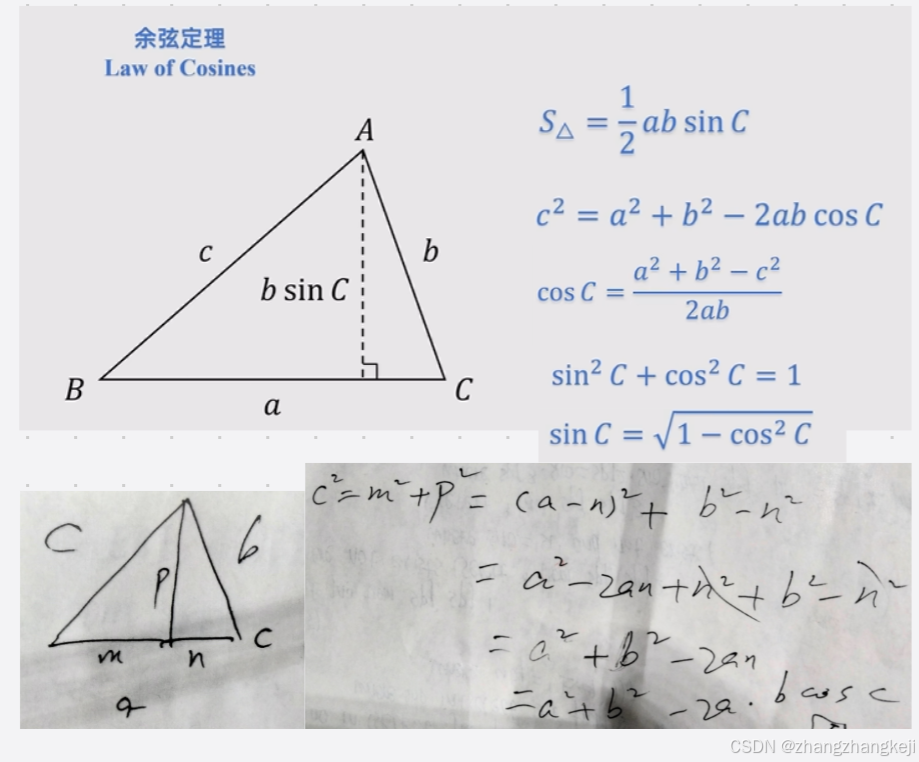 余弦定理
Law of Cosines
A
S△ = 1/2 ab sin C
c² = a² + b² − 2ab cos C
c
b
b sin C
cos C = (a² + b² − c²)/(2ab)
B
C
a
sin² C + cos² C = 1
sin C = √(1 − cos² C)
c b
p
m n C
a
c² = m² + p² = (a−n)² + b² − n²
= a² − 2an + n² + b² − n²
= a² + b² − 2an
= a² + b² − 2a · b cos c
CSDN @zhangzhangkeji